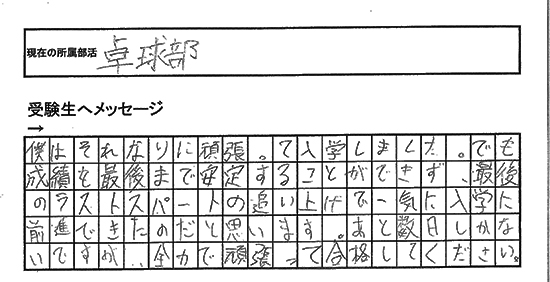 現在の所属部活 卓球部
受験生へメッセージ
→
僕はそれなりに頑張って入学しました。でも
成績を最後まで安定することができず、最後
のラストスパートの追い上げで一気に入学に
前進できたのだと思います。あと数日しかな
いですが、全力で頑張って合格してください。